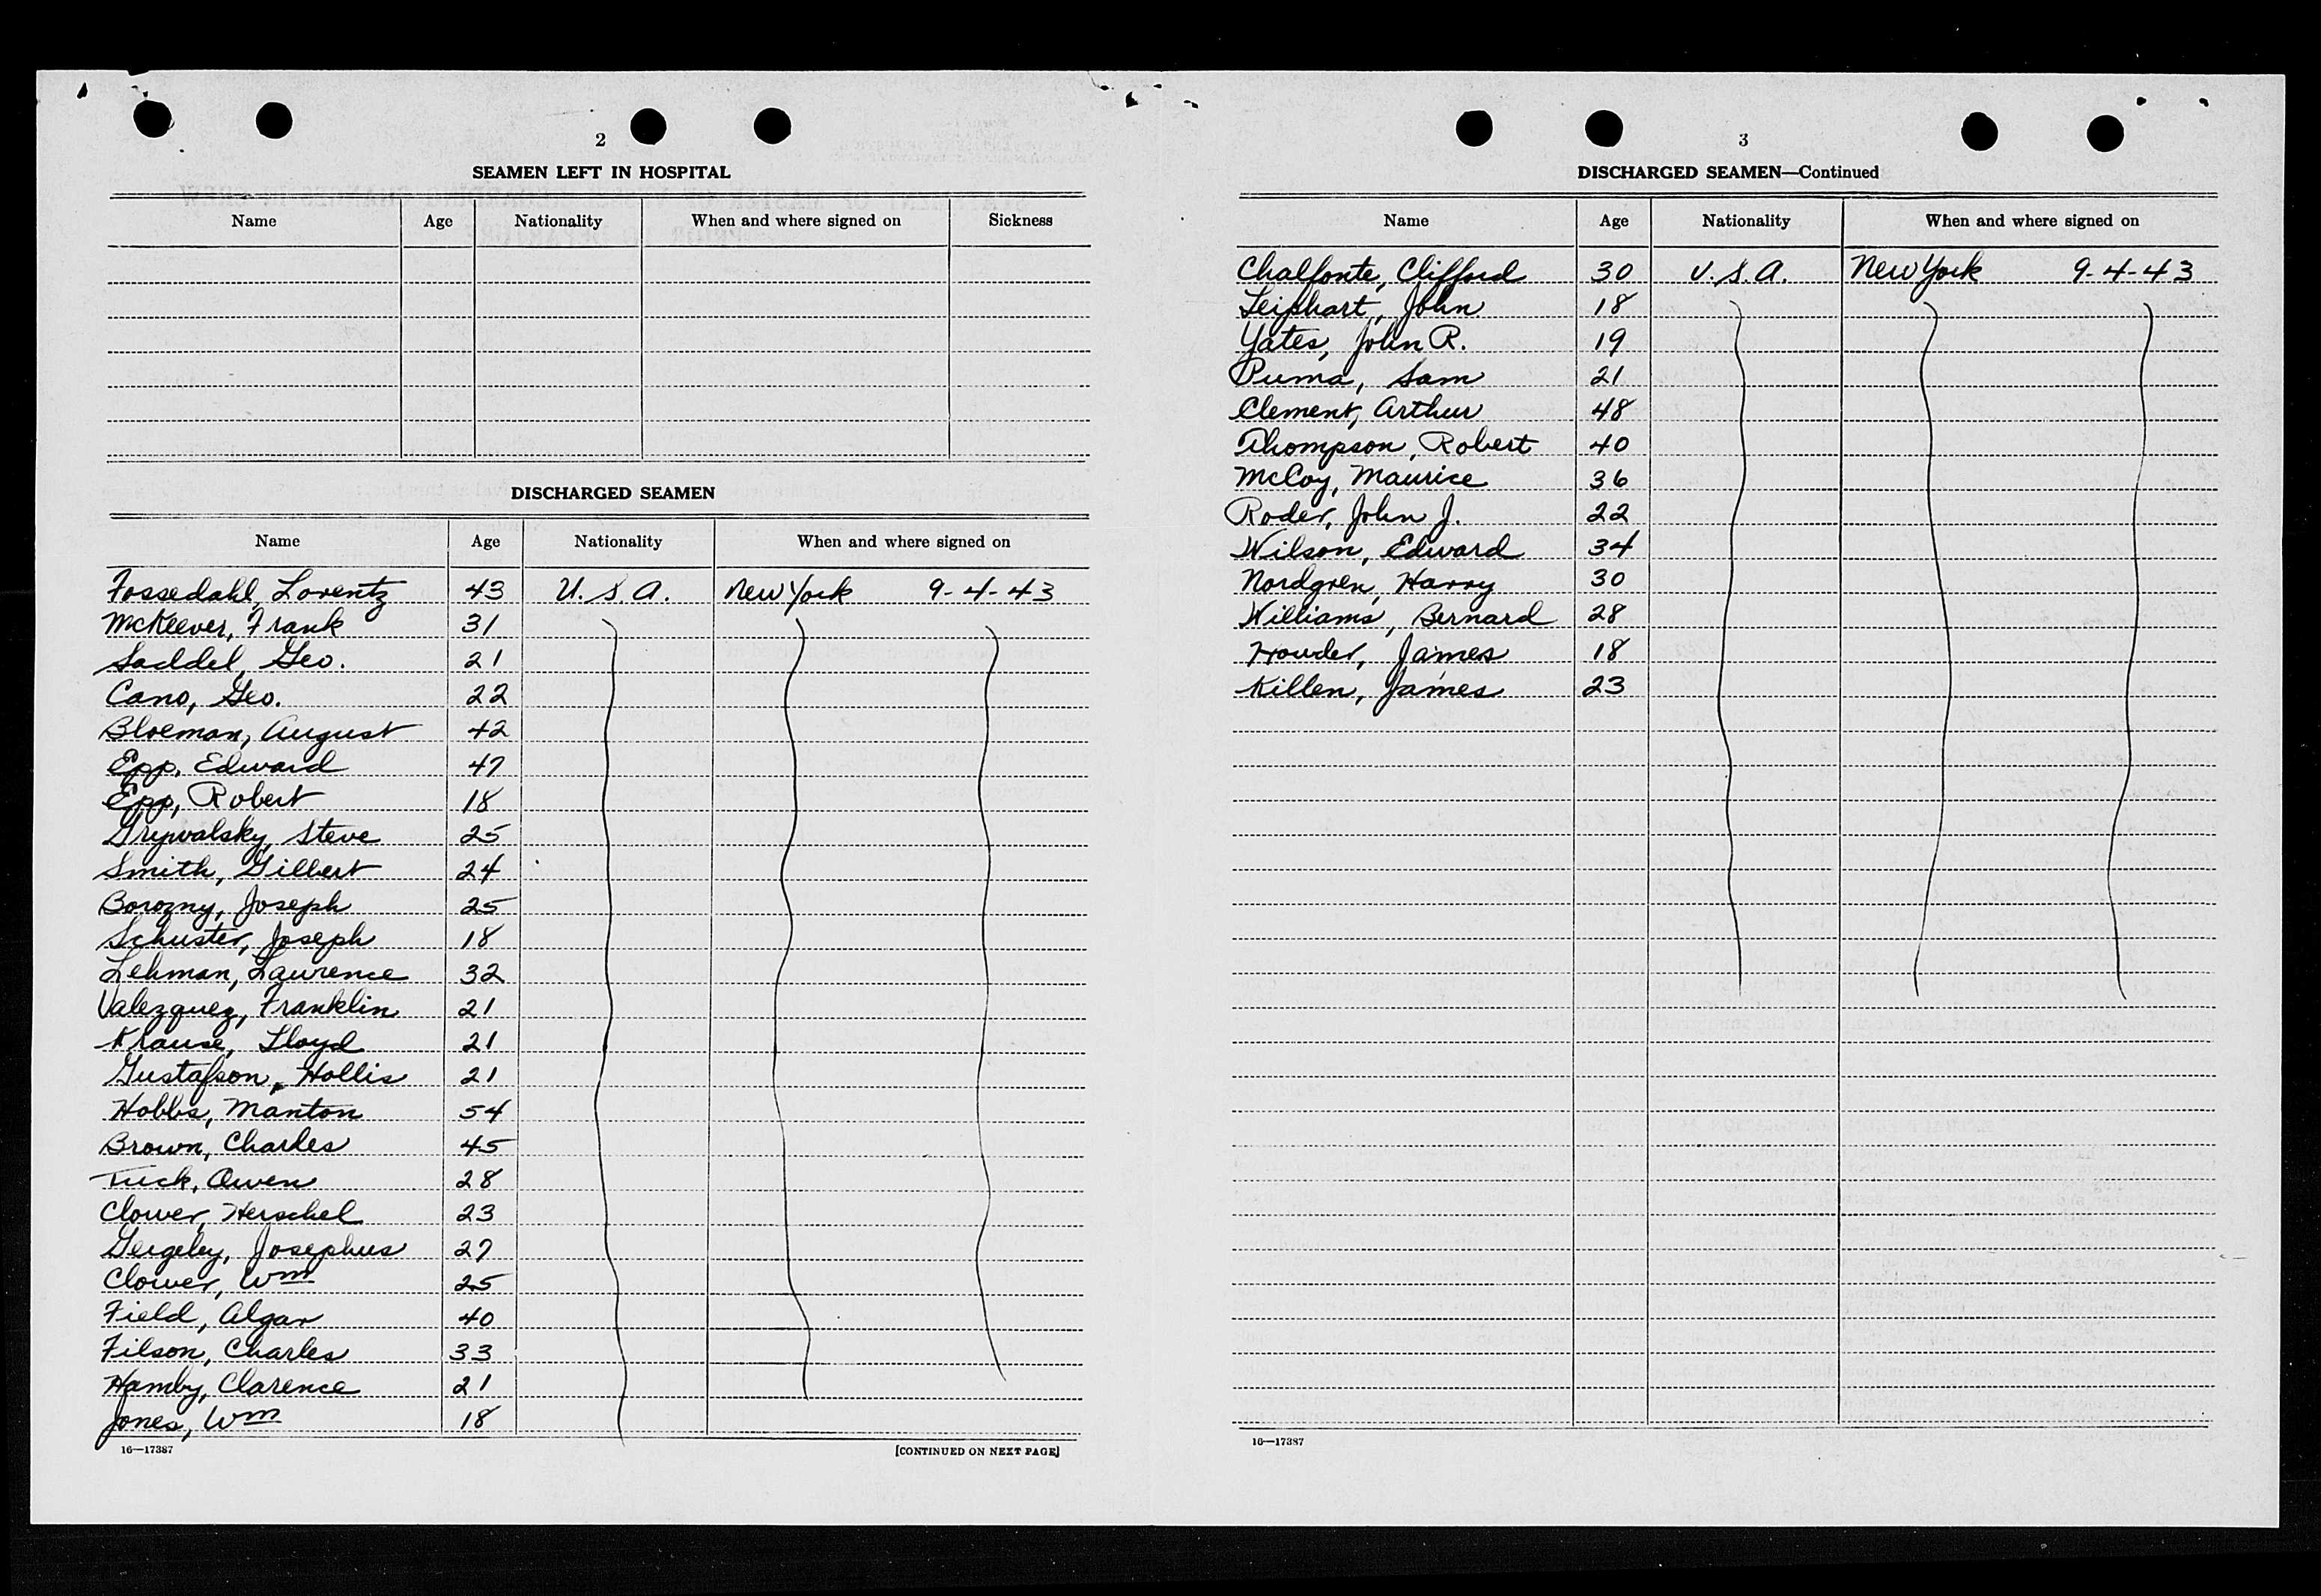 2
SEAMEN LEFT IN HOSPITAL
Name Age Nationality When and where signed on Sickness
DISCHARGED SEAMEN
Name Age Nationality When and where signed on
Fossedahl, Lorentz 43 U.S.A. New York 9-4-43
McKeever, Frank 31
Saddel, Geo. 21
Cano, Geo. 22
Bloeman, August 42
Epp, Edward 47
Epp, Robert 18
Grywalsky, Steve 25
Smith, Gilbert 24
Borozny, Joseph 25
Schuster, Joseph 18
Lehman, Laurence 32
Valezquez, Franklin 21
Krause, Lloyd 21
Gustafson, Hollis 21
Hobbs, Manton 54
Brown, Charles 45
Tuck, Owen 28
Clower, Herschel 23
Gergeley, Josephus 27
Clower, Wm 25
Field, Algar 40
Filson, Charles 33
Hamby, Clarence 21
Jones, Wm 18
16—17387 [CONTINUED ON NEXT PAGE]
3
DISCHARGED SEAMEN—Continued
Name Age Nationality When and where signed on
Chalfonte, Clifford 30 U.S.A. New York 9-4-43
Leiphart, John 18
Yates, John R. 19
Puma, Sam 21
Clement, Arthur 48
Thompson, Robert 40
McCoy, Maurice 36
Roder, John J. 22
Wilson, Edward 34
Nordgren, Harry 30
Williams, Bernard 28
Howder, James 18
Killen, James 23
16—17387